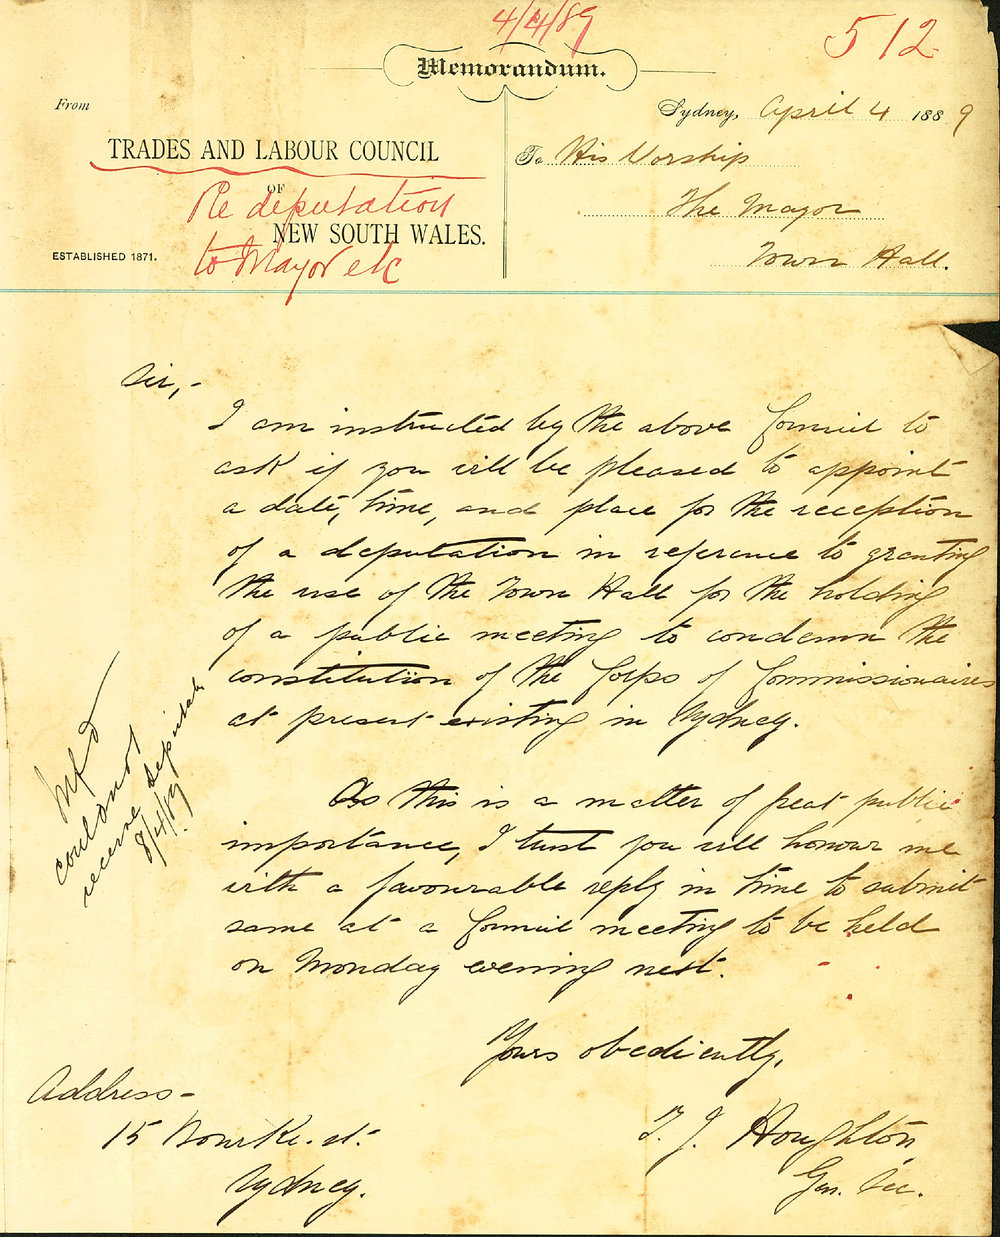 4/4/89
512
Memorandum.
From
Sydney, April 4 1889
TRADES AND LABOUR COUNCIL
OF
NEW SOUTH WALES.
ESTABLISHED 1871.
Re deputation
to Mayor etc
To His Worship
The Mayor
Town Hall.
Sir,-
I am instructed by the above Council to
ask if you will be pleased to appoint
a date, time, and place for the reception
of a deputation in reference to granting
the use of the Town Hall for the holding
of a public meeting to condemn the
constitution of the Corps of Commissionaires
at present existing in Sydney.
As this is a matter of great public
importance, I trust you will honour me
with a favourable reply in time to submit
same at a Council meeting to be held
on Monday evening next.
Yours obediently,
T. J. Houghton
Gen. Sec.
Address-
15 Bourke. st.
Sydney.
could not
receive deputation
8/4/89